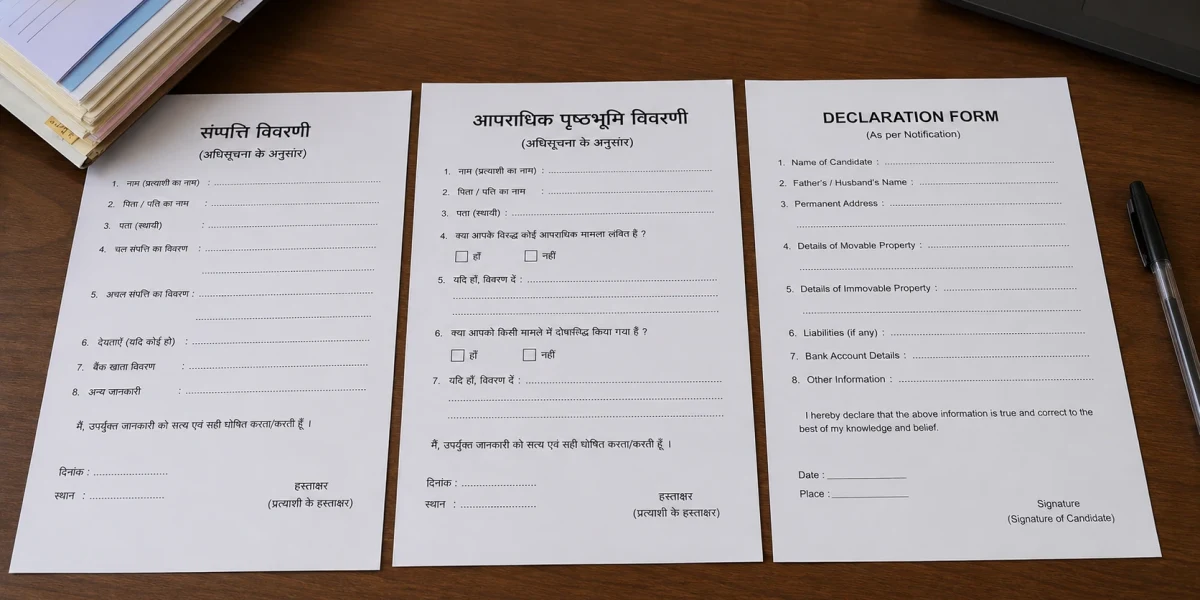 संम्पत्ति विवरणी
(अधिसूचना के अनुसांर)
1. नाम (प्रत्याशी का नाम) :
2. पिता / पति का नाम :
3. पता (स्थायी) :
4. चल संपत्ति का विवरण :
5. अचल संपत्ति का विवरण :
6. देयताएँ (यदि कोई हो) :
7. बैंक खाता विवरण :
8. अन्य जानकारी :
मैं, उपर्युक्त जानकारी को सत्य एवं सही घोषित करता/करती हूँ ।
दिनांक :
स्थान :
हस्ताक्षर
(प्रत्याशी के हस्ताक्षर)
आपराधिक पृष्ठभूमि विवरणी
(अधिसूचना के अनुसांर)
1. नाम (प्रत्याशी का नाम) :
2. पिता / पति का नाम :
3. पता (स्थायी) :
4. क्या आपके विरुद्ध कोई आपराधिक मामला लंबित है ?
हाँ नहीं
5. यदि हाँ, विवरण दें :
6. क्या आपको किसी मामले में दोषसिद्धि किया गया है ?
हाँ नहीं
7. यदि हाँ, विवरण दें :
मैं, उपर्युक्त जानकारी को सत्य एवं सही घोषित करता/करती हूँ ।
दिनांक :
स्थान :
हस्ताक्षर
(प्रत्याशी के हस्ताक्षर)
DECLARATION FORM
(As per Notification)
1. Name of Candidate :
2. Father's / Husband's Name :
3. Permanent Address :
4. Details of Movable Property :
5. Details of Immovable Property :
6. Liabilities (if any) :
7. Bank Account Details :
8. Other Information :
I hereby declare that the above information is true and correct to the
best of my knowledge and belief.
Date :
Place :
Signature
(Signature of Candidate)